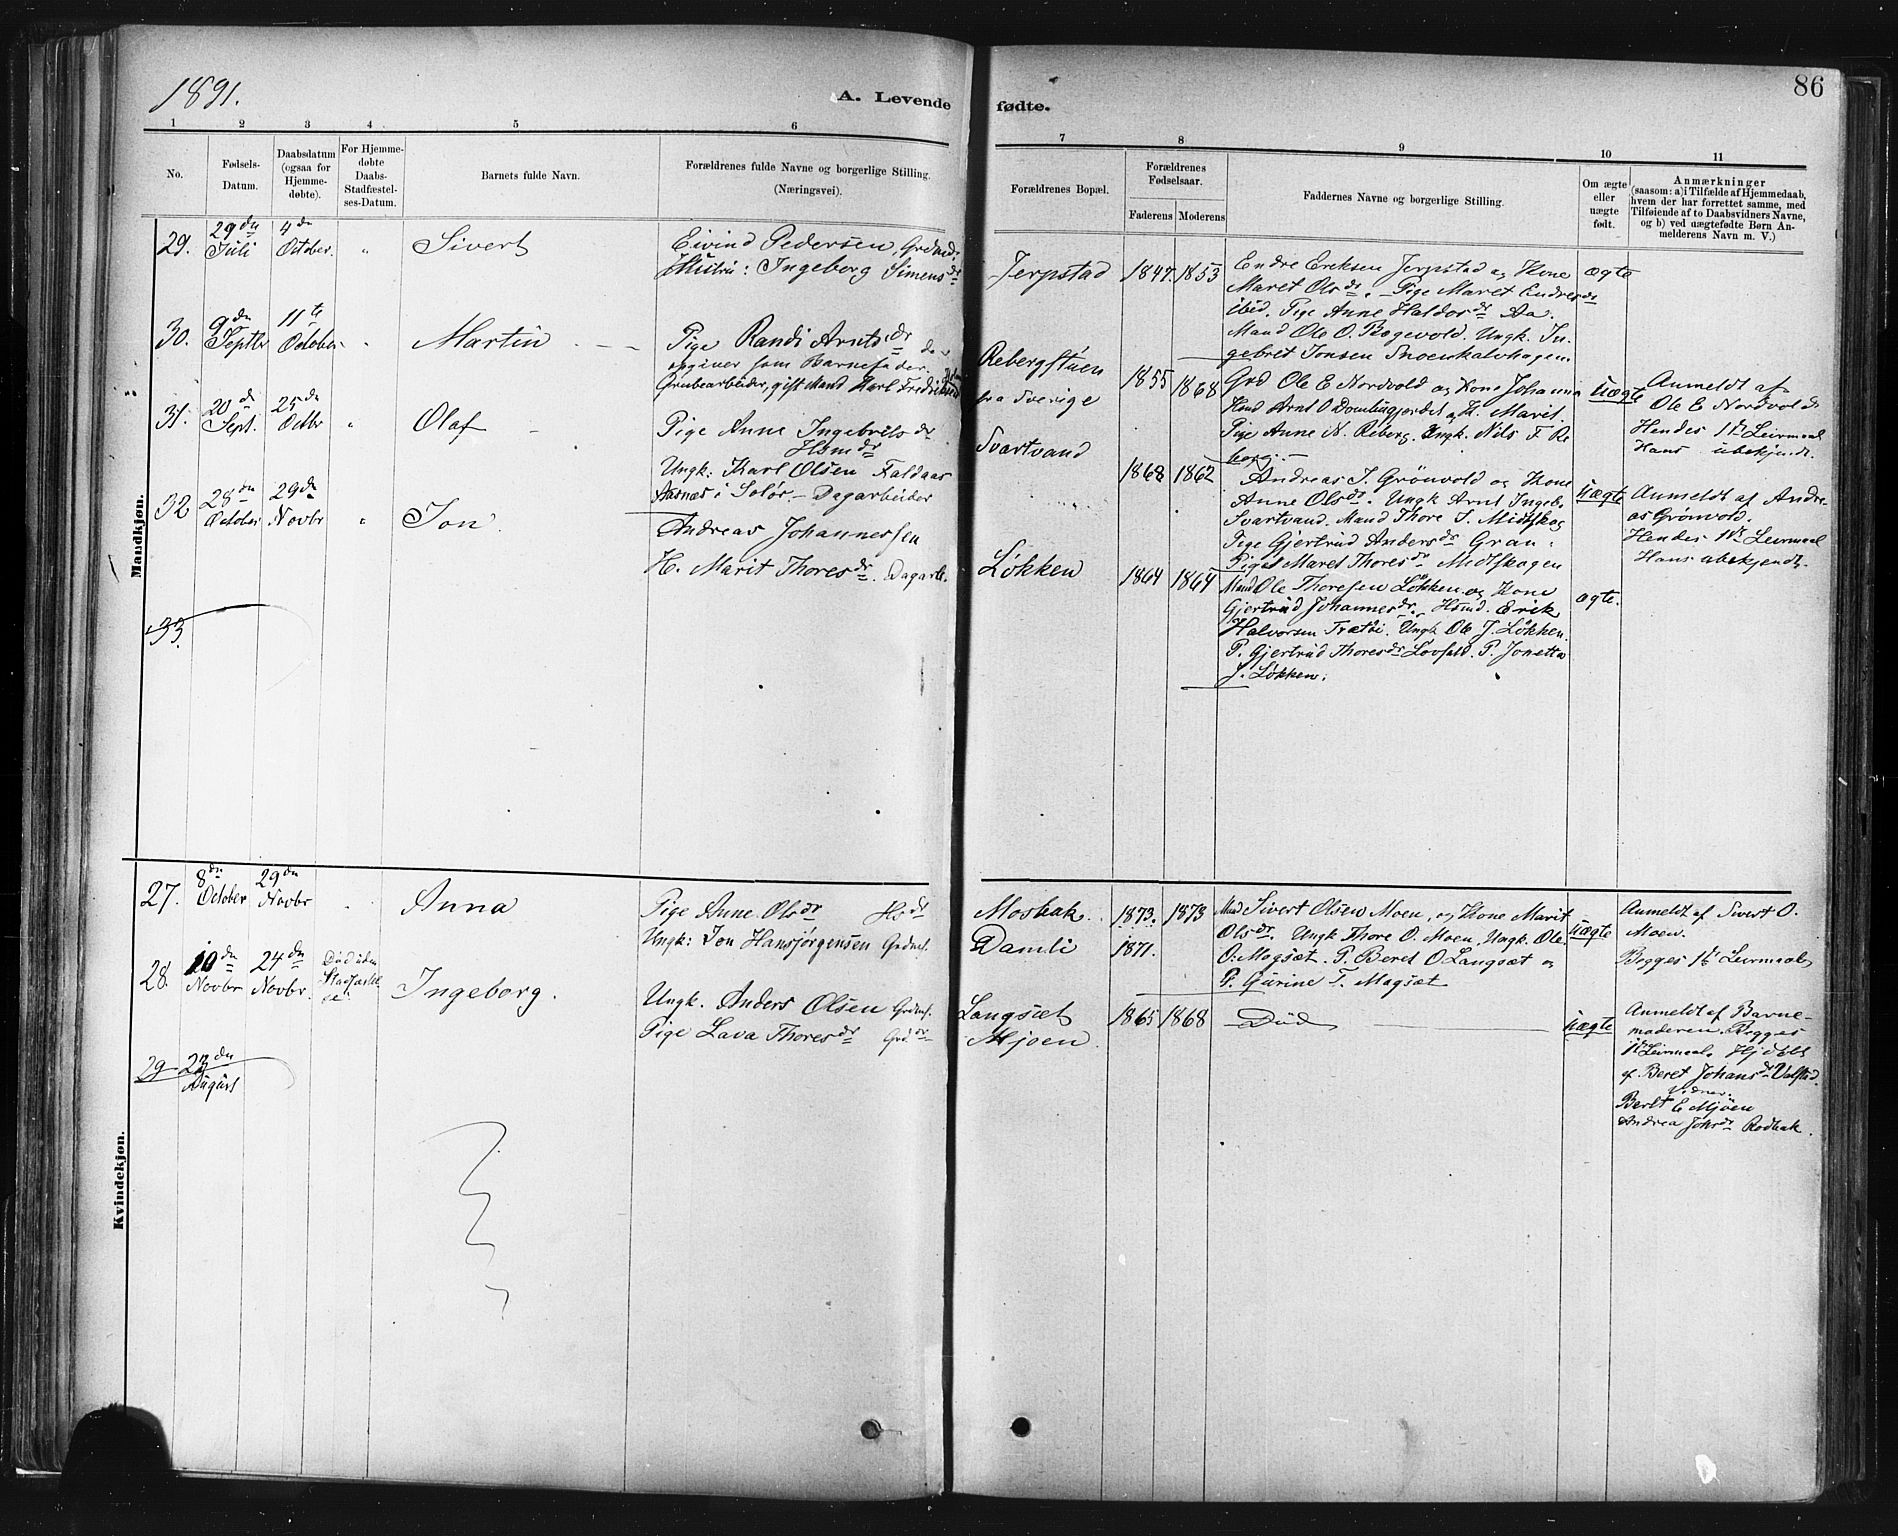 1891.
A. Levende fødte.
86
1 2 3 4 5 6 7 8 9 10 11
No.
Fødsels-Datum.
Daabsdatum (ogsaa for Hjemme-døbte).
For Hjemme-døbte Daabs-Stadfæstel-ses-Datum.
Barnets fulde Navn.
Forældrenes fulde Navne og borgerlige Stilling.
(Næringsvei).
Forældrenes Bopæl.
Forældrenes Fødselsaar.
Faderens Moderens
Faddernes Navne og borgerlige Stilling.
Om ægte eller uægte født.
Anmærkninger
(saasom: a) i Tilfælde af Hjemmedaab,
hvem der har forrettet samme, med
Tilføiende af to Daabsvidners Navne,
og b) ved uægtefødte Børn An-
melderens Navn m. V.)
Mandkjøn.
29. 29de Juli 4de October. " Sivert
Eivind Pedersen, Grdmd,
Hustru: Ingeborg Simensdr
Jerpstad 1847. 1853
Endre Eriksen Jerpstad og Kone
Maret Olsdr. – Pige Maret Endresdr
ibid. Pige Anne Haldosdr Aa.
Mand Ole O. Bogevold. Ungk. In-
gebret Jonsen Snoenkalvhagen
ægte
30. 9de Septbr 11te October " Martin
Pige Randi Arntsdr
opgiver som Barnefader
Grubearbeider, gift Mand Karl Fredriksen
Rebergstuen
fra Sverige
1855 1868
Grd Ole E Nordvold og Kone Johanna
Hsmd Arnt O Domhusgjerdet og K. Marit
Pige Anne N. Reberg. Ungk. Nils F. Re-
berg. –
uægte
Anmeldt af
Ole E Nordvold
Hendes 1ste Leirmaal
Hans ubekjendt.
31. 20de Sept. 25de Octbr " Olaf
Pige Anne Ingebrilsdr
Hsmdr
Ungk: Karl Olsen Faldaas
Aasnæs i Solør – Dagarbeider
Svartvand 1868 1862
Andreas J. Grönvold og Kone
Anne Olsdr. Ungk Arnt Ingeb.
Svartvand. Mand Thore J. Midtskog
Pige Gjertrud Andersdr Gran.
Pige Maret Thoresdr Midtskogen
uægte
Anmeldt af Andre-
as Grönvold.
Hendes 1ste Leirmaal
Hans ubekjendt.
32 28de October 29de Novbr " Jon
Andreas Johannessen
H. Marit Thoresdr. Dagarb.
Løkken 1864 1864
Mand Ole Thoresen Løkken og Kone
Gjertrud Johannesdr. Hsmd. Erik
Halvorsen Trætöi. Ungk Ole J. Løkken.
P. Gjertrud Thoresdr Lovfald. P. Jonetta
J. Løkken.
ægte.
33.
Kvindekjøn.
27. 8de October 29de Novbr Anna
Pige Anne Olsdr Hsdr
Ungk: Jon Hansjørgensen Grdmd.
Moshak. 1873. 1873
Damli 1871.
Mand Sivert Olsen Moen, og Kone Marit
Olsdr. Ungk Thore O. Moen, Ungk. Ole
O. Magsæt. P. Beret O Langsæt og
P. Gurine T. Magsæt
uægte
Anmeldt af Sivert O.
Moen.
Begges 1ste Leirmaal
28. 10de Novbr 24de Novbr. Död uden Stadfæstel se. Ingeborg.
Ungk. Anders Olsen Grdmd.
Pige Lava Thoresdr Grddr
Langsæt 1865 1868
Mjoen
Död
uægte
Anmeldt af Barne-
moderen. Begges
1ste Leirmaal. Hjdbt
af Beret Johansdr Valstad.
Vidner:
Berit E Mjöen
Andrea Johsdr Rodbak.
29 23de August